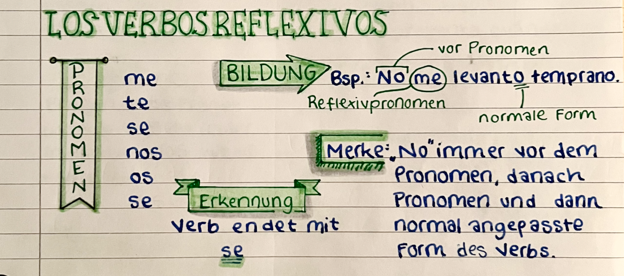 LOS VERBOS REFLEXIVOS
PRONOMEN
me
te
se
nos
os
se
BILDUNG
vor Pronomen
Bsp.: No me levanto temprano.
Reflexivpronomen
normale Form
Erkennung
Verb endet mit
se
Merke: "No" immer vor dem
Pronomen, danach
Pronomen und dann
normal angepasste
Form des Verbs.